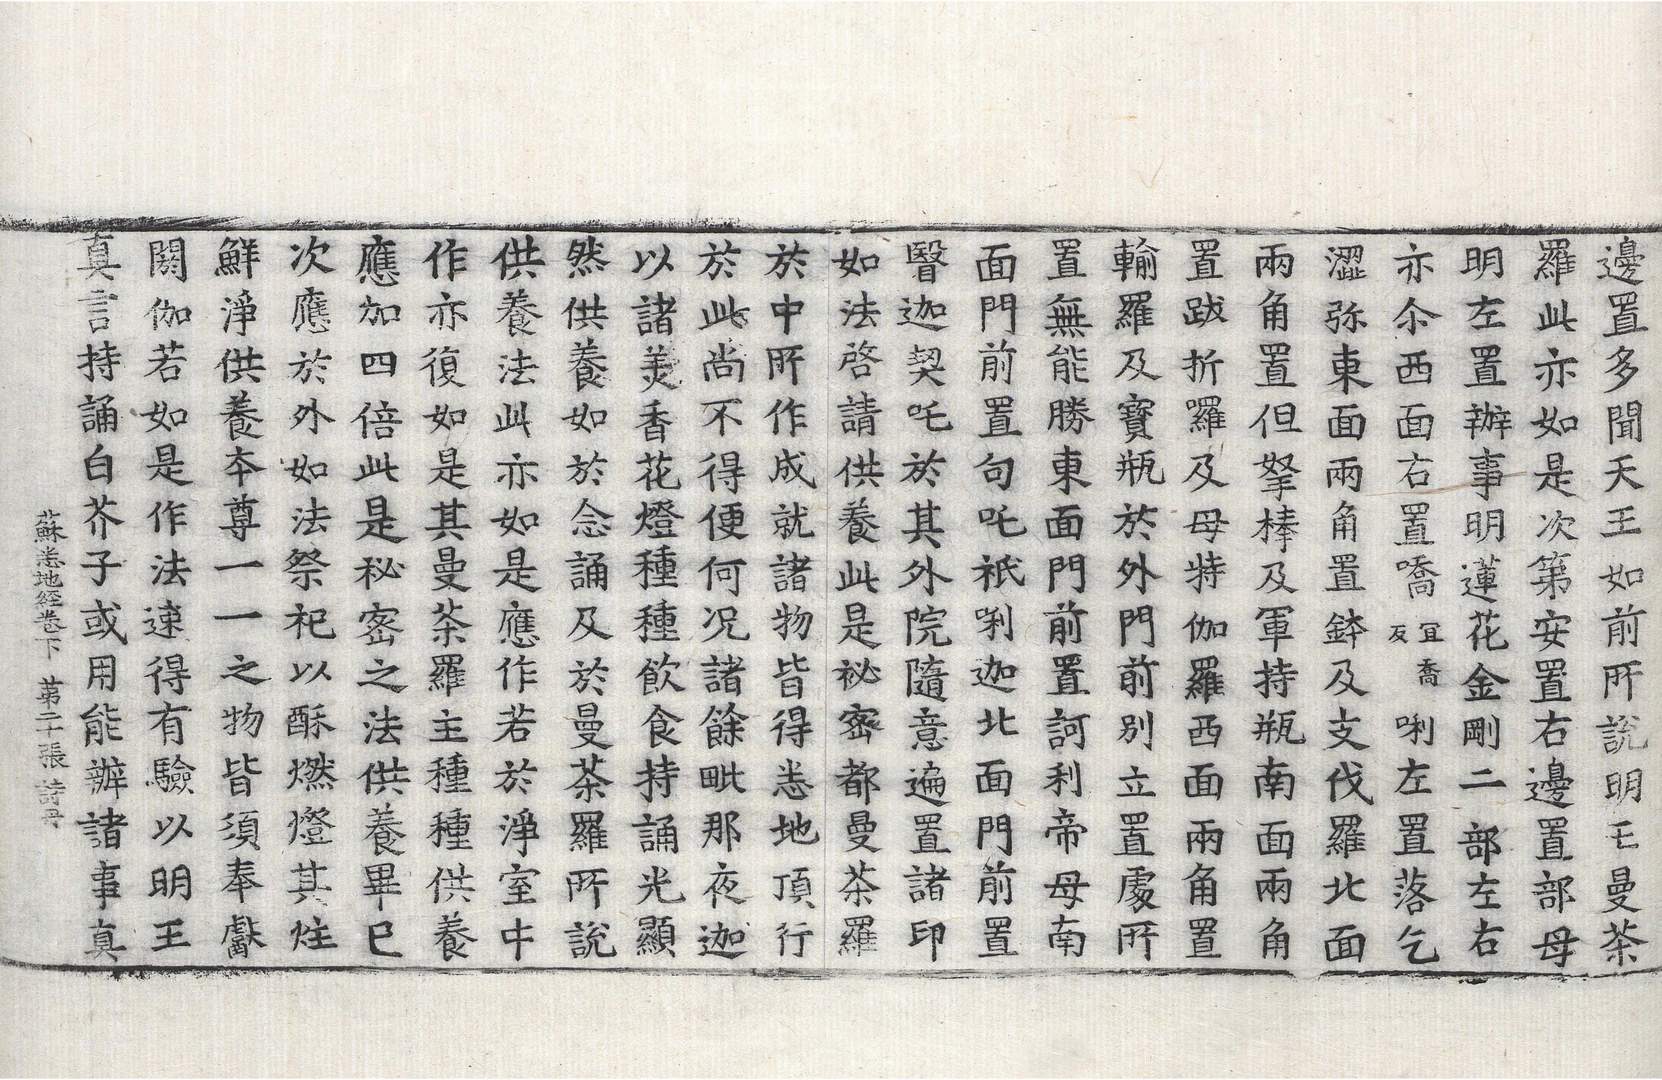 邊置多聞天王如前所說明王曼茶
羅此亦如是次第安置右邊置部母
明左置辦事明蓮花金剛二部左右
亦尒西面右置嚌冝喬反唎左置落乞
澀弥東面兩角置鉢及支伐羅北面
兩角置但拏棒及軍持瓶南面兩角
置跋折囉及母特伽羅西面兩角置
輸羅及寶瓶於外門前別立置處所
置無能勝東面門前置訶利帝母南
面門前置句吒祇唎迦北面門前置
翳迦契吒於其外院隨意遍置諸印
如法啓請供養此是祕密都曼茶羅
於中所作成就諸物皆得悉地頂行
於此尚不得便何况諸餘毗那夜迦
以諸羙香花燈種種飲食持誦光顯
然供養如於念誦及於曼茶羅所說
供養法此亦如是應作若於淨室中
作亦復如是其曼茶羅主種種供養
應加四倍此是秘密之法供養畢已
次應於外如法祭祀以酥燃燈其炷
鮮淨供養本尊一一之物皆須奉獻
閼伽若如是作法速得有驗以明王
真言持誦白芥子或用能辦諸事真
蘇悉地經卷下 第二十張 詩母